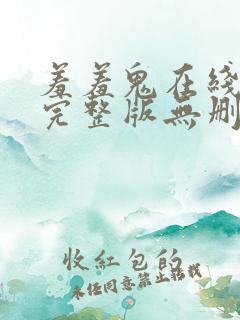 羞羞鬼在綫
完整版無刪
收紅包的
未经同意禁止转载